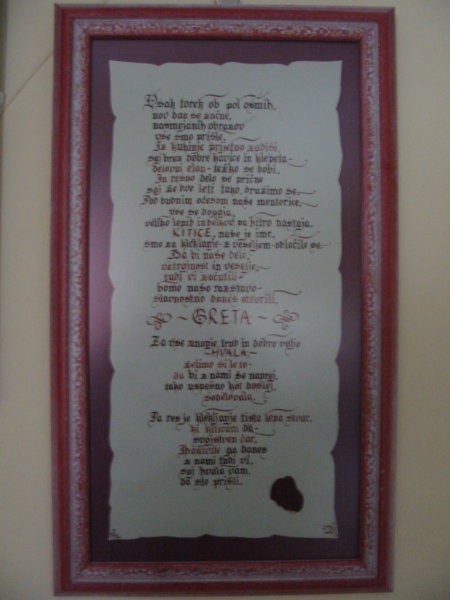 Vsak torek ob pol osmih,
nov dan se začne,
nasmejanih obrazov
vse smo prišle.
Iz kuhinje prijetno zadiši,
saj brez dobre kavice in klepeta
delovni elan - težko se dobi.
In resno delo se prične
saj že dve leti tako, družimo se.
Pod budnim očesom naše mentorice,
vse se dogaja,
veliko lepih izdelkov pa hitro nastaja.
KITICE, naše je ime,
smo za klekljanje z veseljem odločile se.
Da bi naše delo,
vztrajnost in veselje,
tudi vi začutili
bomo našo razstavo
slavnostno danes otvorili.
~ GRETA ~
Za vse znanje, trud in dobro voljo
~HVALA~
želimo si le to -
da bi z nami še naprej,
tako uspešno kot doslej,
sodelovala.
Ja res je klekljanje tista lepa stvar,
ki kiticam da
svojstven čar.
Začutite ga danes
z nami tudi vi,
saj hvala vam,
da ste prišli.